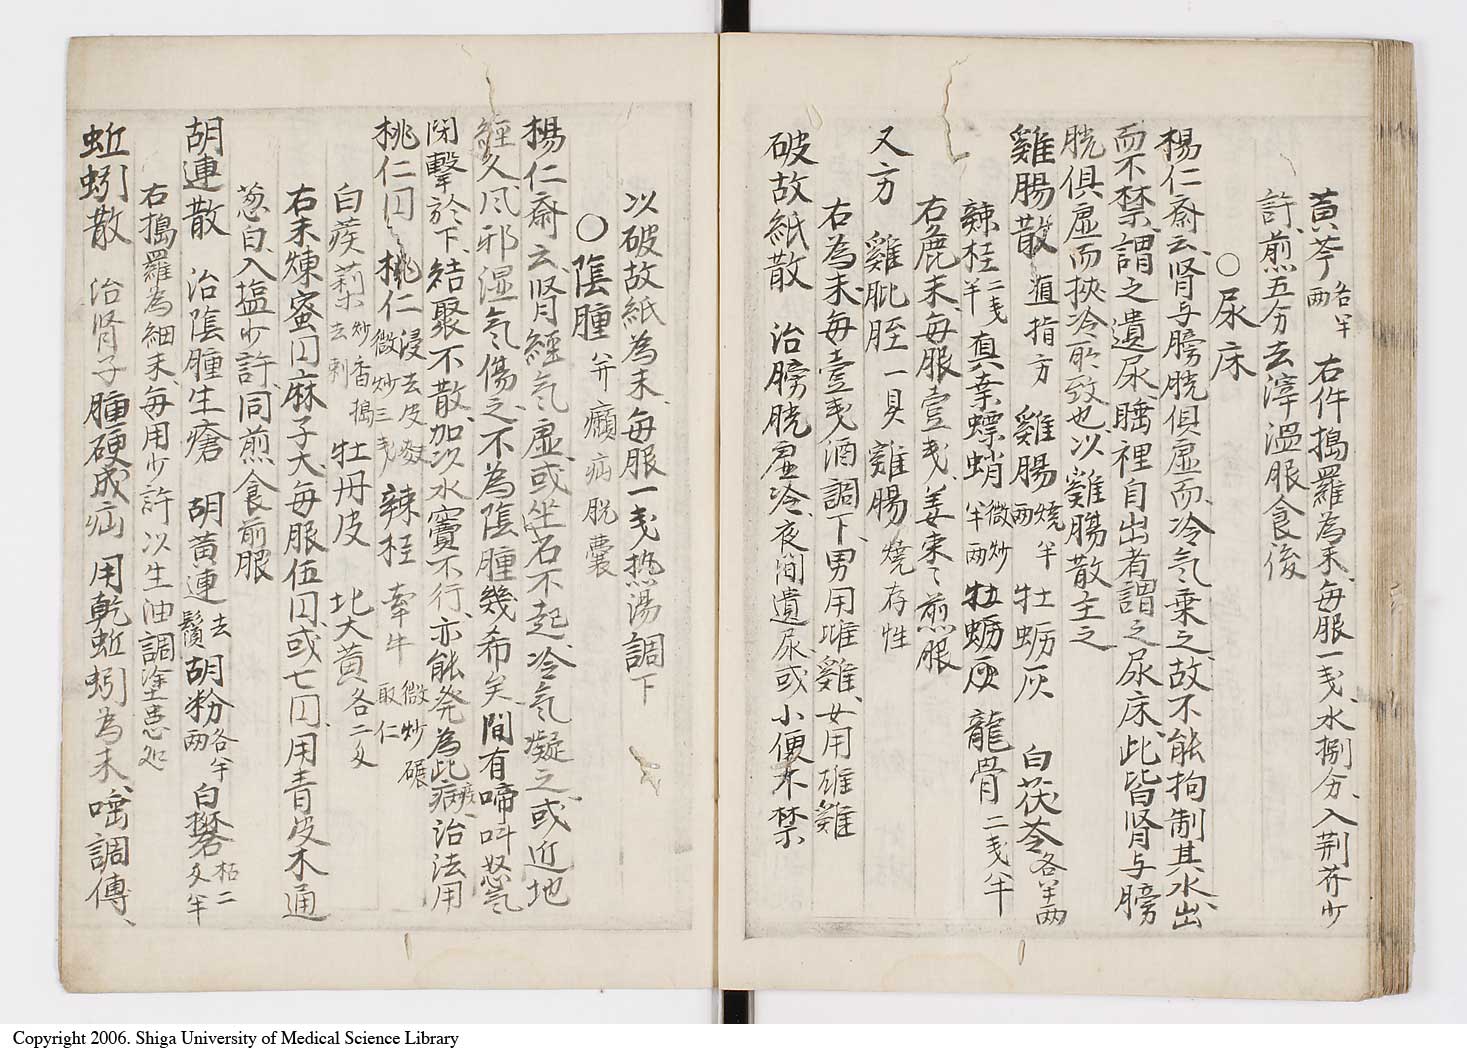 黄芩各半両 右件搗羅為末、毎服一戔、水捌分、入荆芥少
許、煎五分去滓温服食後
○尿床
楊仁斎云、肾与膀胱俱虚而、冷气乗之、故不能拘制其水、出
而不禁、謂之遺尿、睡裡自出者、謂之尿床、此皆肾与膀
胱俱虚而挾冷所致也、以雞腸散主之
雞腸散 直指方 雞腸燒半両 牡蛎灰 白茯苓各半両
辣桂二戔半 真桒螵蛸微炒半両 牡蛎灰 龍骨二戔半
右麁末、毎服壹戔、姜棗〻煎服
又方 雞肶胵一具 雞腸燒存性
右為末、毎壹戔酒調下、男用雌雞、女用雄雞
破故紙散 治膀胱虚冷、夜间遺尿、或小便不禁
以破故紙為末、毎服一戔热湯調下
○陰腫并癩病脱囊
楊仁斎云、肾經气虚、或坐石不起、冷气凝之、或近地
經久、风邪湿气傷之、不為陰腫幾希矣、间有啼叫怒气
闭擊於下、結聚不散、加以水竇不行、亦能発為此病疾、治法用
桃仁囙 桃仁浸去皮麩微炒三戔 辣桂 牽牛微炒碾取仁
白蒺莉炒香搗去刺 牡丹皮 北大黄各二文
右末煉蜜囙麻子大、毎服伍囙、或七囙、用青皮木通
葱白、入塩少許、同煎食前服
胡連散 治陰腫生瘡 胡黄連去鬚 胡粉各半両 白礬枯二文半
右搗羅為細末、毎用少許以生油調塗患処
蚯蚓散 治肾子腫硬成疝 用乾蚯蚓為末、唾調傅、